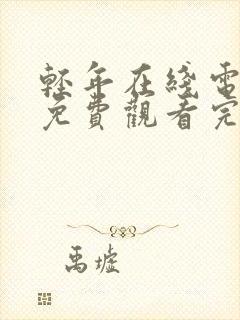 轻年在綫電
免費觀看完
禹墟